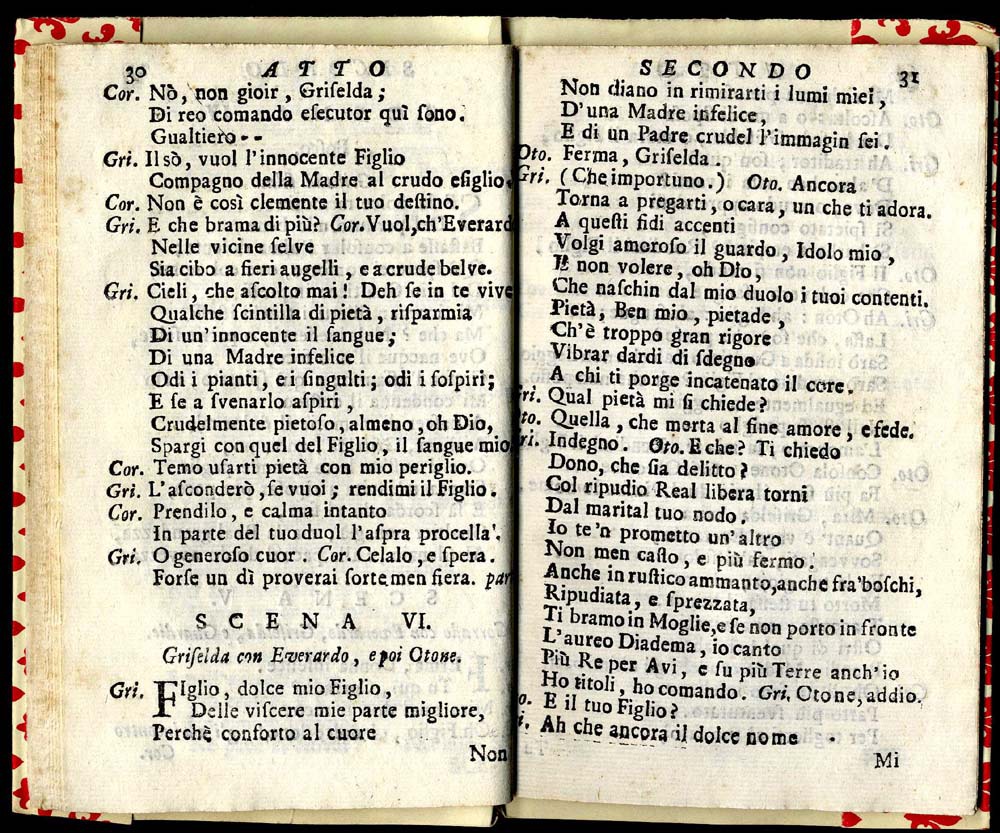 30 ATTO
Cor. Nò, non gioir, Griſelda;
Di reo comando eſecutor quì ſono.
Gualtiero--
Gri. Il sò, vuol l'innocente Figlio
Compagno della Madre al crudo eſiglio.
Cor. Non è così clemente il tuo deſtino.
Gri. E che brama di più? Cor. Vuol, ch'Everard
Nelle vicine ſelve
Sia cibo a fieri augelli, e a crude belve.
Gri. Cieli, che aſcolto mai! Deh ſe in te vive
Qualche ſcintilla di pietà, riſparmia
Di un'innocente il ſangue;
Di una Madre infelice
Odi i pianti, e i ſingulti; odi i ſoſpiri;
E ſe a ſvenarlo aſpiri,
Crudelmente pietoſo, almeno, oh Dio,
Spargi con quel del Figlio, il ſangue mio
Cor. Temo uſarti pietà con mio periglio.
Gri. L'aſconderò, ſe vuoi; rendimi il Figlio.
Cor. Prendilo, e calma intanto
In parte del tuo duol l'aſpra procella'.
Gri. O generoſo cuor. Cor. Celalo, e ſpera.
Forſe un dì proverai ſorte men fiera. par
SCENA VI.
Griſelda con Everardo, e poi Otone.
Gri. Figlio, dolce mio Figlio,
Delle viſcere mie parte migliore,
Perchè conforto al cuore
Non
SECONDO 31
Non diano in rimirarti i lumi miei,
D'una Madre infelice,
E di un Padre crudel l'immagin ſei.
Oto. Ferma, Griſelda.
Gri. (Che importuno.) Oto. Ancora
Torna a pregarti, o cara, un che ti adora.
A queſti fidi accenti
Volgi amoroſo il guardo, Idolo mio,
E non volere, oh Dio,
Che naſchin dal mio duolo i tuoi contenti.
Pietà, Ben mio, pietade,
Ch'è troppo gran rigore
Vibrar dardi di ſdegno
A chi ti porge incatenato il core.
ri. Qual pietà mi ſi chiede?
to. Quella, che merta al fine amore, e fede.
ri. Indegno. Oto. E che? Ti chiedo
Dono, che ſia delitto?
Col ripudio Real libera torni
Dal marital tuo nodo.
Io te 'n prometto un'altro
Non men caſto, e più fermo.
Anche in ruſtico ammanto, anche fra'boſchi,
Ripudiata, e ſprezzata,
Ti bramo in Moglie, e ſe non porto in fronte
L'aureo Diadema, io canto
Più Re per Avi, e ſu più Terre anch'io
Ho titoli, ho comando. Gri. Otone, addio.
o. E il tuo Figlio?
i. Ah che ancora il dolce nome
Mi